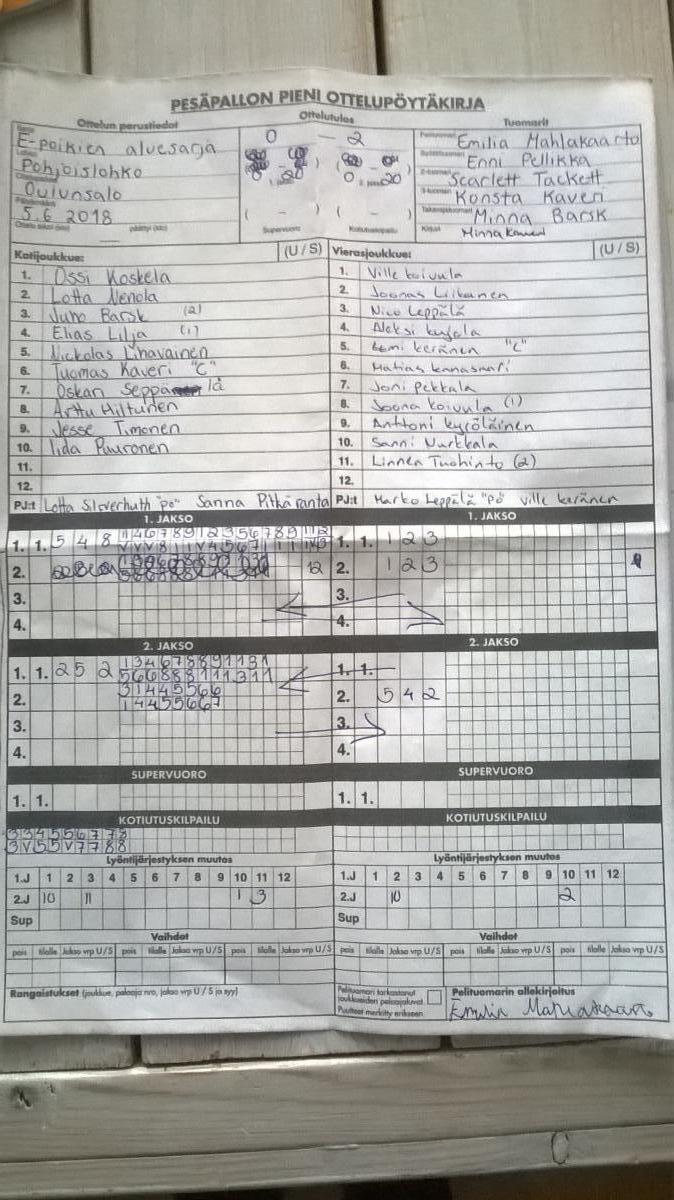 PESÄPALLON PIENI OTTELUPÖYTÄKIRJA
Ottelun perustiedot
Ottelutulos
Tuomarit
E-poikien aluesarja
Pohjoislohko
Oulunsalo
5.6 2018
0 - 2
0 20
0 20
( - ) ( - )
Supervuoro Kotiutuskilpailu
Emilia Mahlakaarto
Enni Pellikka
Scarlett Tackett
Konsta Kaveri
Minna Barsk
Minna Kaveri
Kotijoukkue: (U / S)
1. Ossi Koskela
2. Lotta Nenola
3. Juho Barsk (2)
4. Elias Lilja (1)
5. Nickolas Lihavainen
6. Tuomas Kaveri "C"
7. Oskari Seppälä
8. Arttu Hiltunen
9. Jesse Timonen
10. Iida Puuronen
11.
12.
PJ:t Lotta Silverhuth "po" Sanna Pitkäranta
Vierasjoukkue: (U / S)
1. Ville Koivula
2. Joonas Liikanen
3. Nico Leppälä
4. Aleksi
5. Eemi Keränen "C"
6. Matias
7. Joni Pekkala
8. Joona Koivula (1)
9. Anttoni Kyröläinen
10. Sanni Nurkkala
11. Linnea Tuohinto (2)
12.
PJ:t Marko Leppälä "PÖ" Ville Keränen
1. JAKSO
1. 1. 5 4 8
2. 12
3.
4.
1. JAKSO
1. 1. 1 2 3
2. 1 2 3
3.
4.
2. JAKSO
1. 1. 2 5 2 1 3 4 6 7 8 8 9 1 1 3 1
5 6 6 8 8 8 1 1 1 3 1 1
2. 3 1 4 4 5 5 6 6
1 4 4 5 5 6 6 7
3.
4.
2. JAKSO
1. 1.
2. 5 4 2
3.
4.
SUPERVUORO
1. 1.
SUPERVUORO
1. 1.
KOTIUTUSKILPAILU
3 3 4 5 5 6 7 7 8
3 V 5 5 V 7 7 8 8
KOTIUTUSKILPAILU
Lyöntijärjestyksen muutos
1.J 1 2 3 4 5 6 7 8 9 10 11 12
2.J 10 11 1 3
Sup
Lyöntijärjestyksen muutos
1.J 1 2 3 4 5 6 7 8 9 10 11 12
2.J 10 2
Sup
Vaihdot
pois tilalle Jakso vrp U/S pois tilalle Jakso vrp U/S pois tilalle Jakso vrp U/S
Vaihdot
pois tilalle Jakso vrp U/S pois tilalle Jakso vrp U/S pois tilalle Jakso vrp U/S
Rangaistukset (joukkue, pelaaja nro, jakso vrp U / S ja syy)
Pelituomari tarkastanut
joukkueiden pelaajaluvat
Puutteet merkitty erikseen
Pelituomarin allekirjoitus
Emilia Mahlakaarto